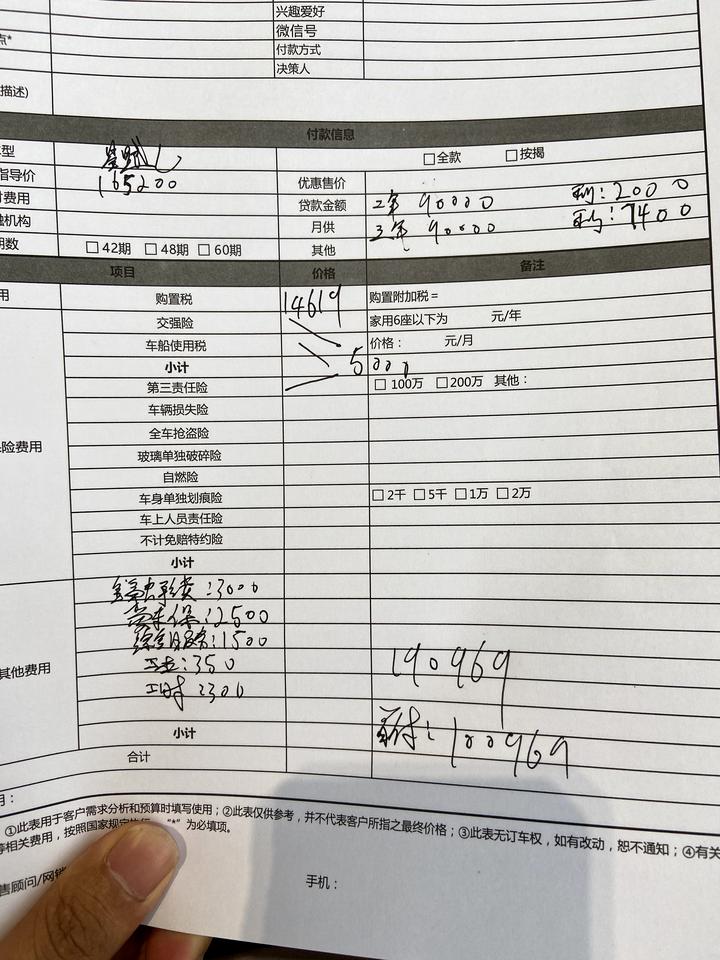 兴趣爱好
点* 微信号
付款方式
决策人
描述)
付款信息
型 星越L □全款 □按揭
指导价 165200 优惠售价
费用 贷款金额 2年 90000 利:2000
融机构 月供 3年 90000 利:7400
期数 □ 42期 □ 48期 □ 60期 其他
项目 价格 备注
用 购置税 14619 购置附加税=
交强险 家用6座以下为 元/年
车船使用税 价格: 元/月
小计 5000
第三责任险 □ 100万 □200万 其他:
车辆损失险
全车抢盗险
险费用 玻璃单独破碎险
自燃险
车身单独划痕险 □ 2千 □ 5千 □ 1万 □ 2万
车上人员责任险
不计免赔特约险
小计
:3000
保:2500
综合服务:1500
其他费用 :350 190969
工时 2300
小计 首付:100969
合计
明:
①此表用于客户需求分析和预算时填写使用;②此表仅供参考,并不代表客户所指之最终价格;③此表无订车权,如有改动,恕不通知;④有关
等相关费用,按照国家规定执行 "*"为必填项。
售顾问/网销 手机: